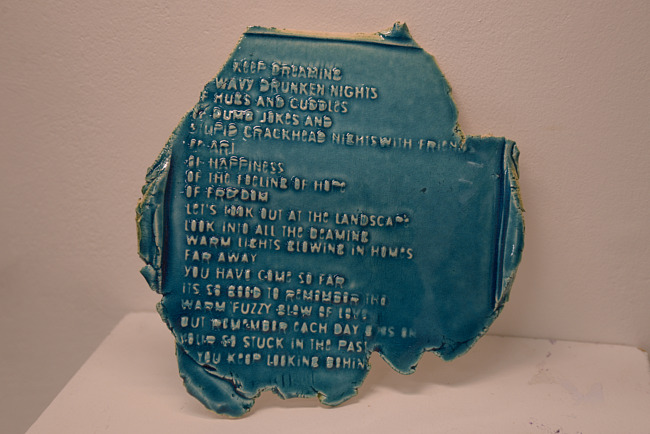 KEEP DREAMING
WAVY DRUNKEN NIGHTS
OF HUGS AND CUDDLES
OF DUMB JOKES AND
STUPID CRACKHEAD NIGHTS WITH FRIEN
OF ART
OF HAPPINESS
OF THE FEELING OF HOPE
OF FREEDOM
LET'S LOOK OUT AT THE LANDSCAP
LOOK INTO ALL THE BEAMING
WARM LIGHTS GLOWING IN HOMES
FAR AWAY
YOU HAVE COME SO FAR
ITS SO GOOD TO REMEMBER THE
WARM FUZZY GLOW OF LOVE
BUT REMEMBER EACH DAY ON
YOUR SO STUCK IN THE PAST
YOU KEEP LOOKING BEHIN